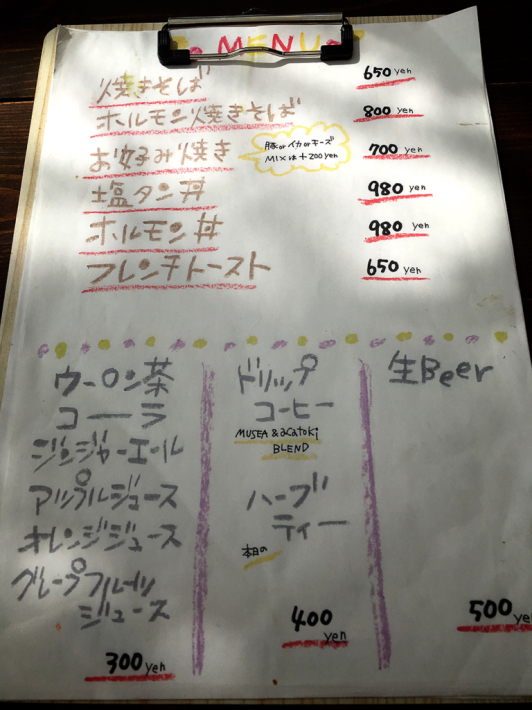 MENU
焼きそば 650 yen
ホルモン焼きそば 800 yen
お好み焼き 豚orイカorチーズ 700 yen
MIXは+200yen
塩タン丼 980 yen
ホルモン丼 980 yen
フレンチトースト 650 yen
ウーロン茶
コーラ
ジンジャーエール
アップルジュース
オレンジジュース
グレープフルーツ
ジュース
300 yen
ドリップ
コーヒー
MUSEA & acatoki
BLEND
ハーブ
ティー
本日の
400
yen
生Beer
500 yen